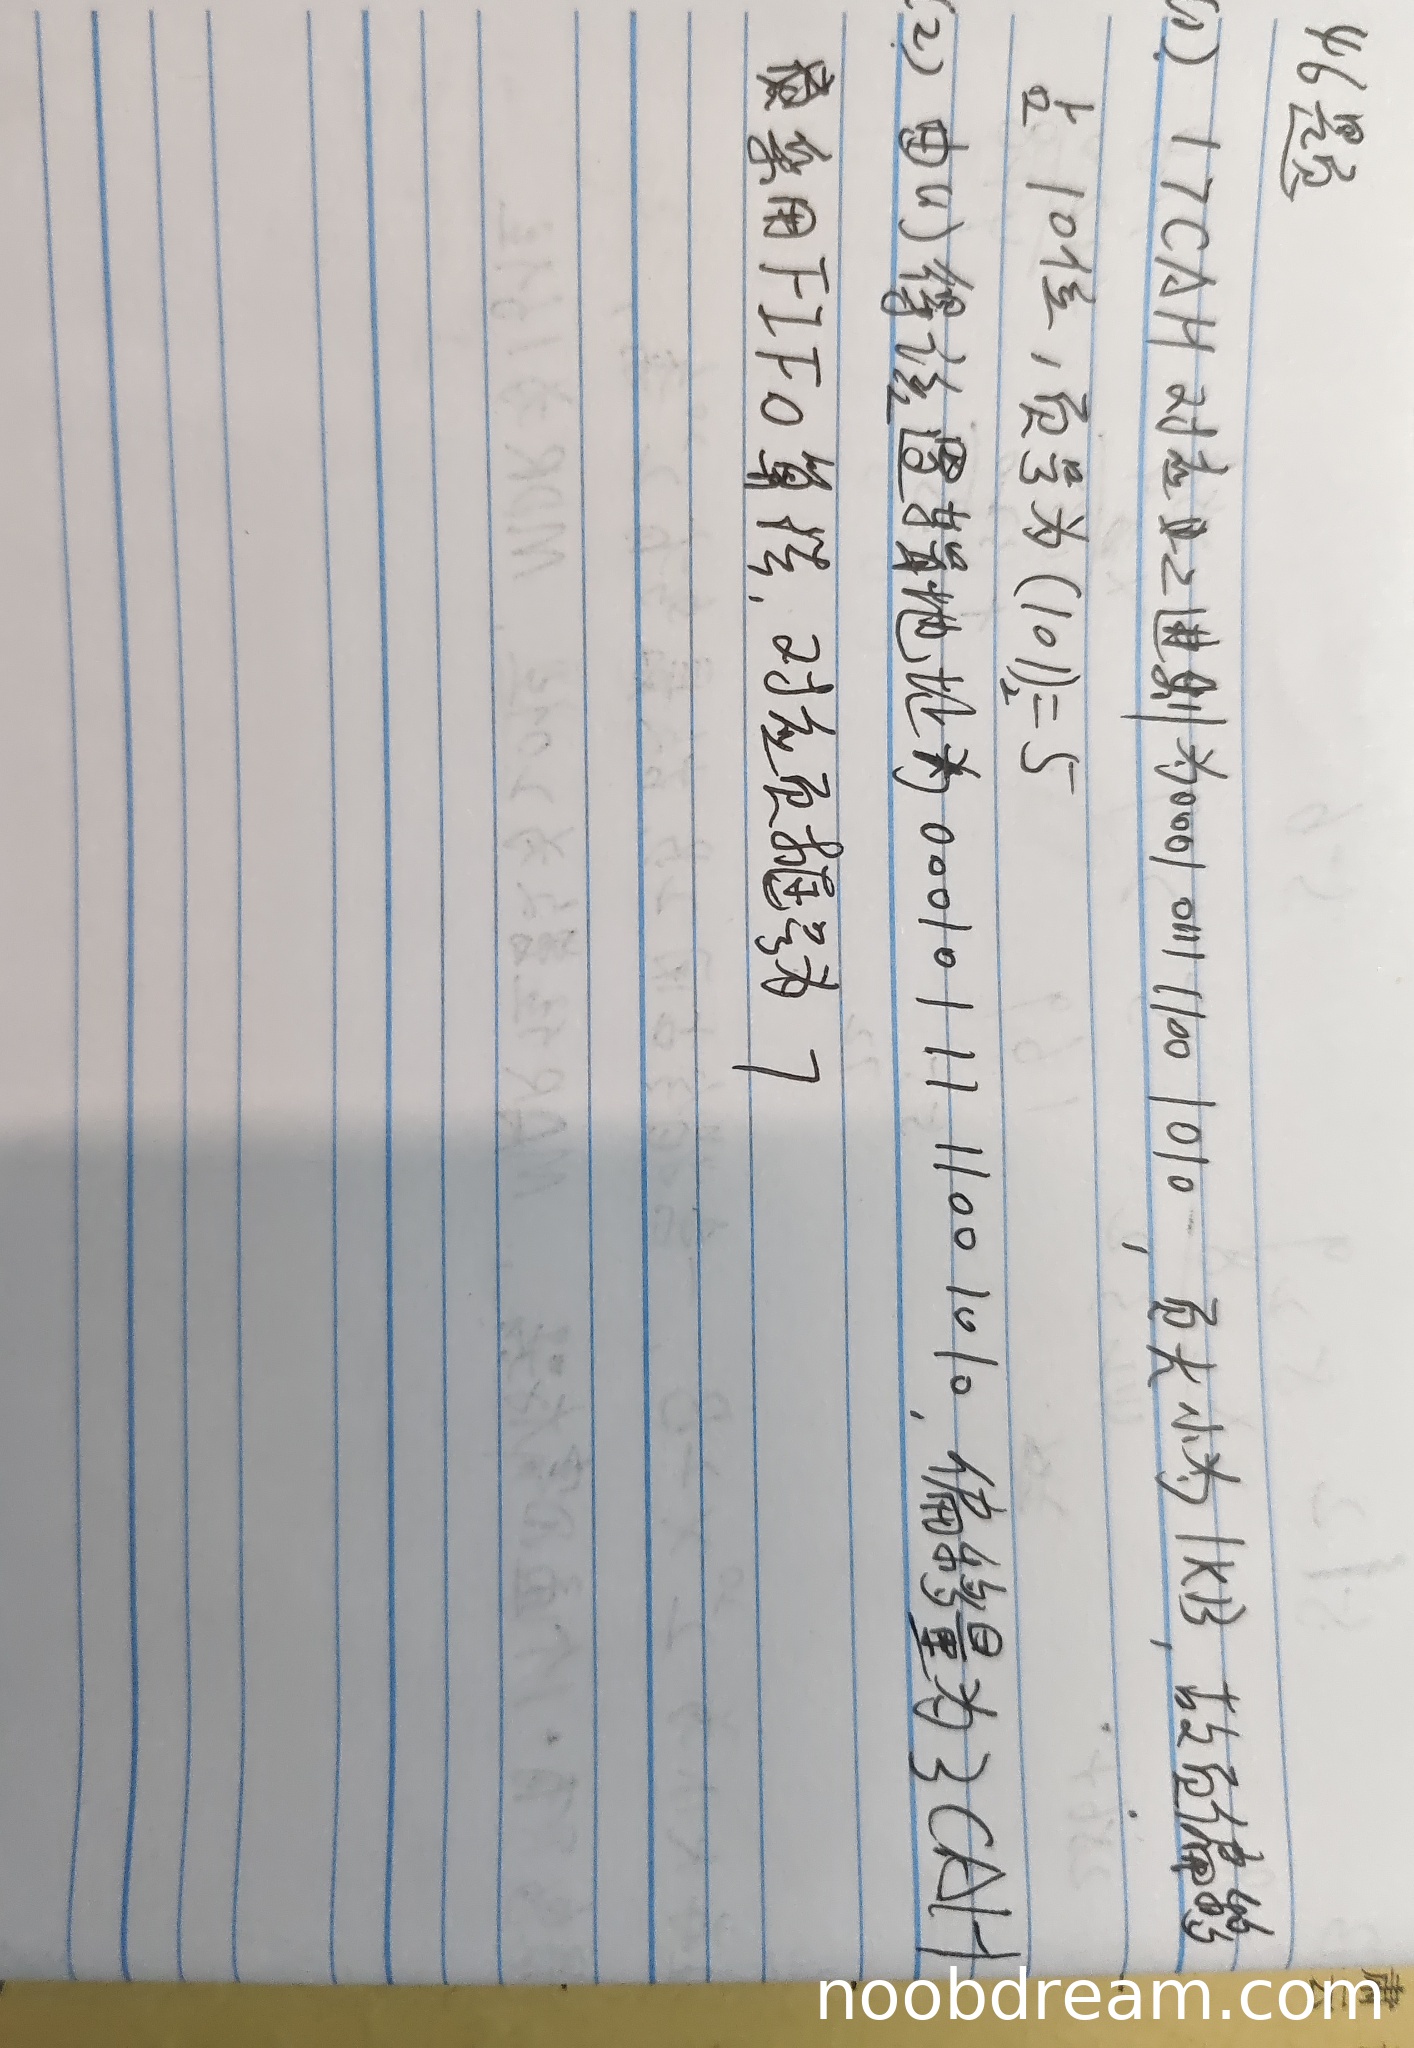 46题
(1) 17CAH 对应二进制为0001 0111 1100 1010，页大小为1KB，故页偏移
占10位，页号为(101)₂=5
(2) 由(1)得该逻辑地址为 00010111 11001010，偏移量为3CAH
采用FIFO算法，对应页框号为 7
noobdream.com